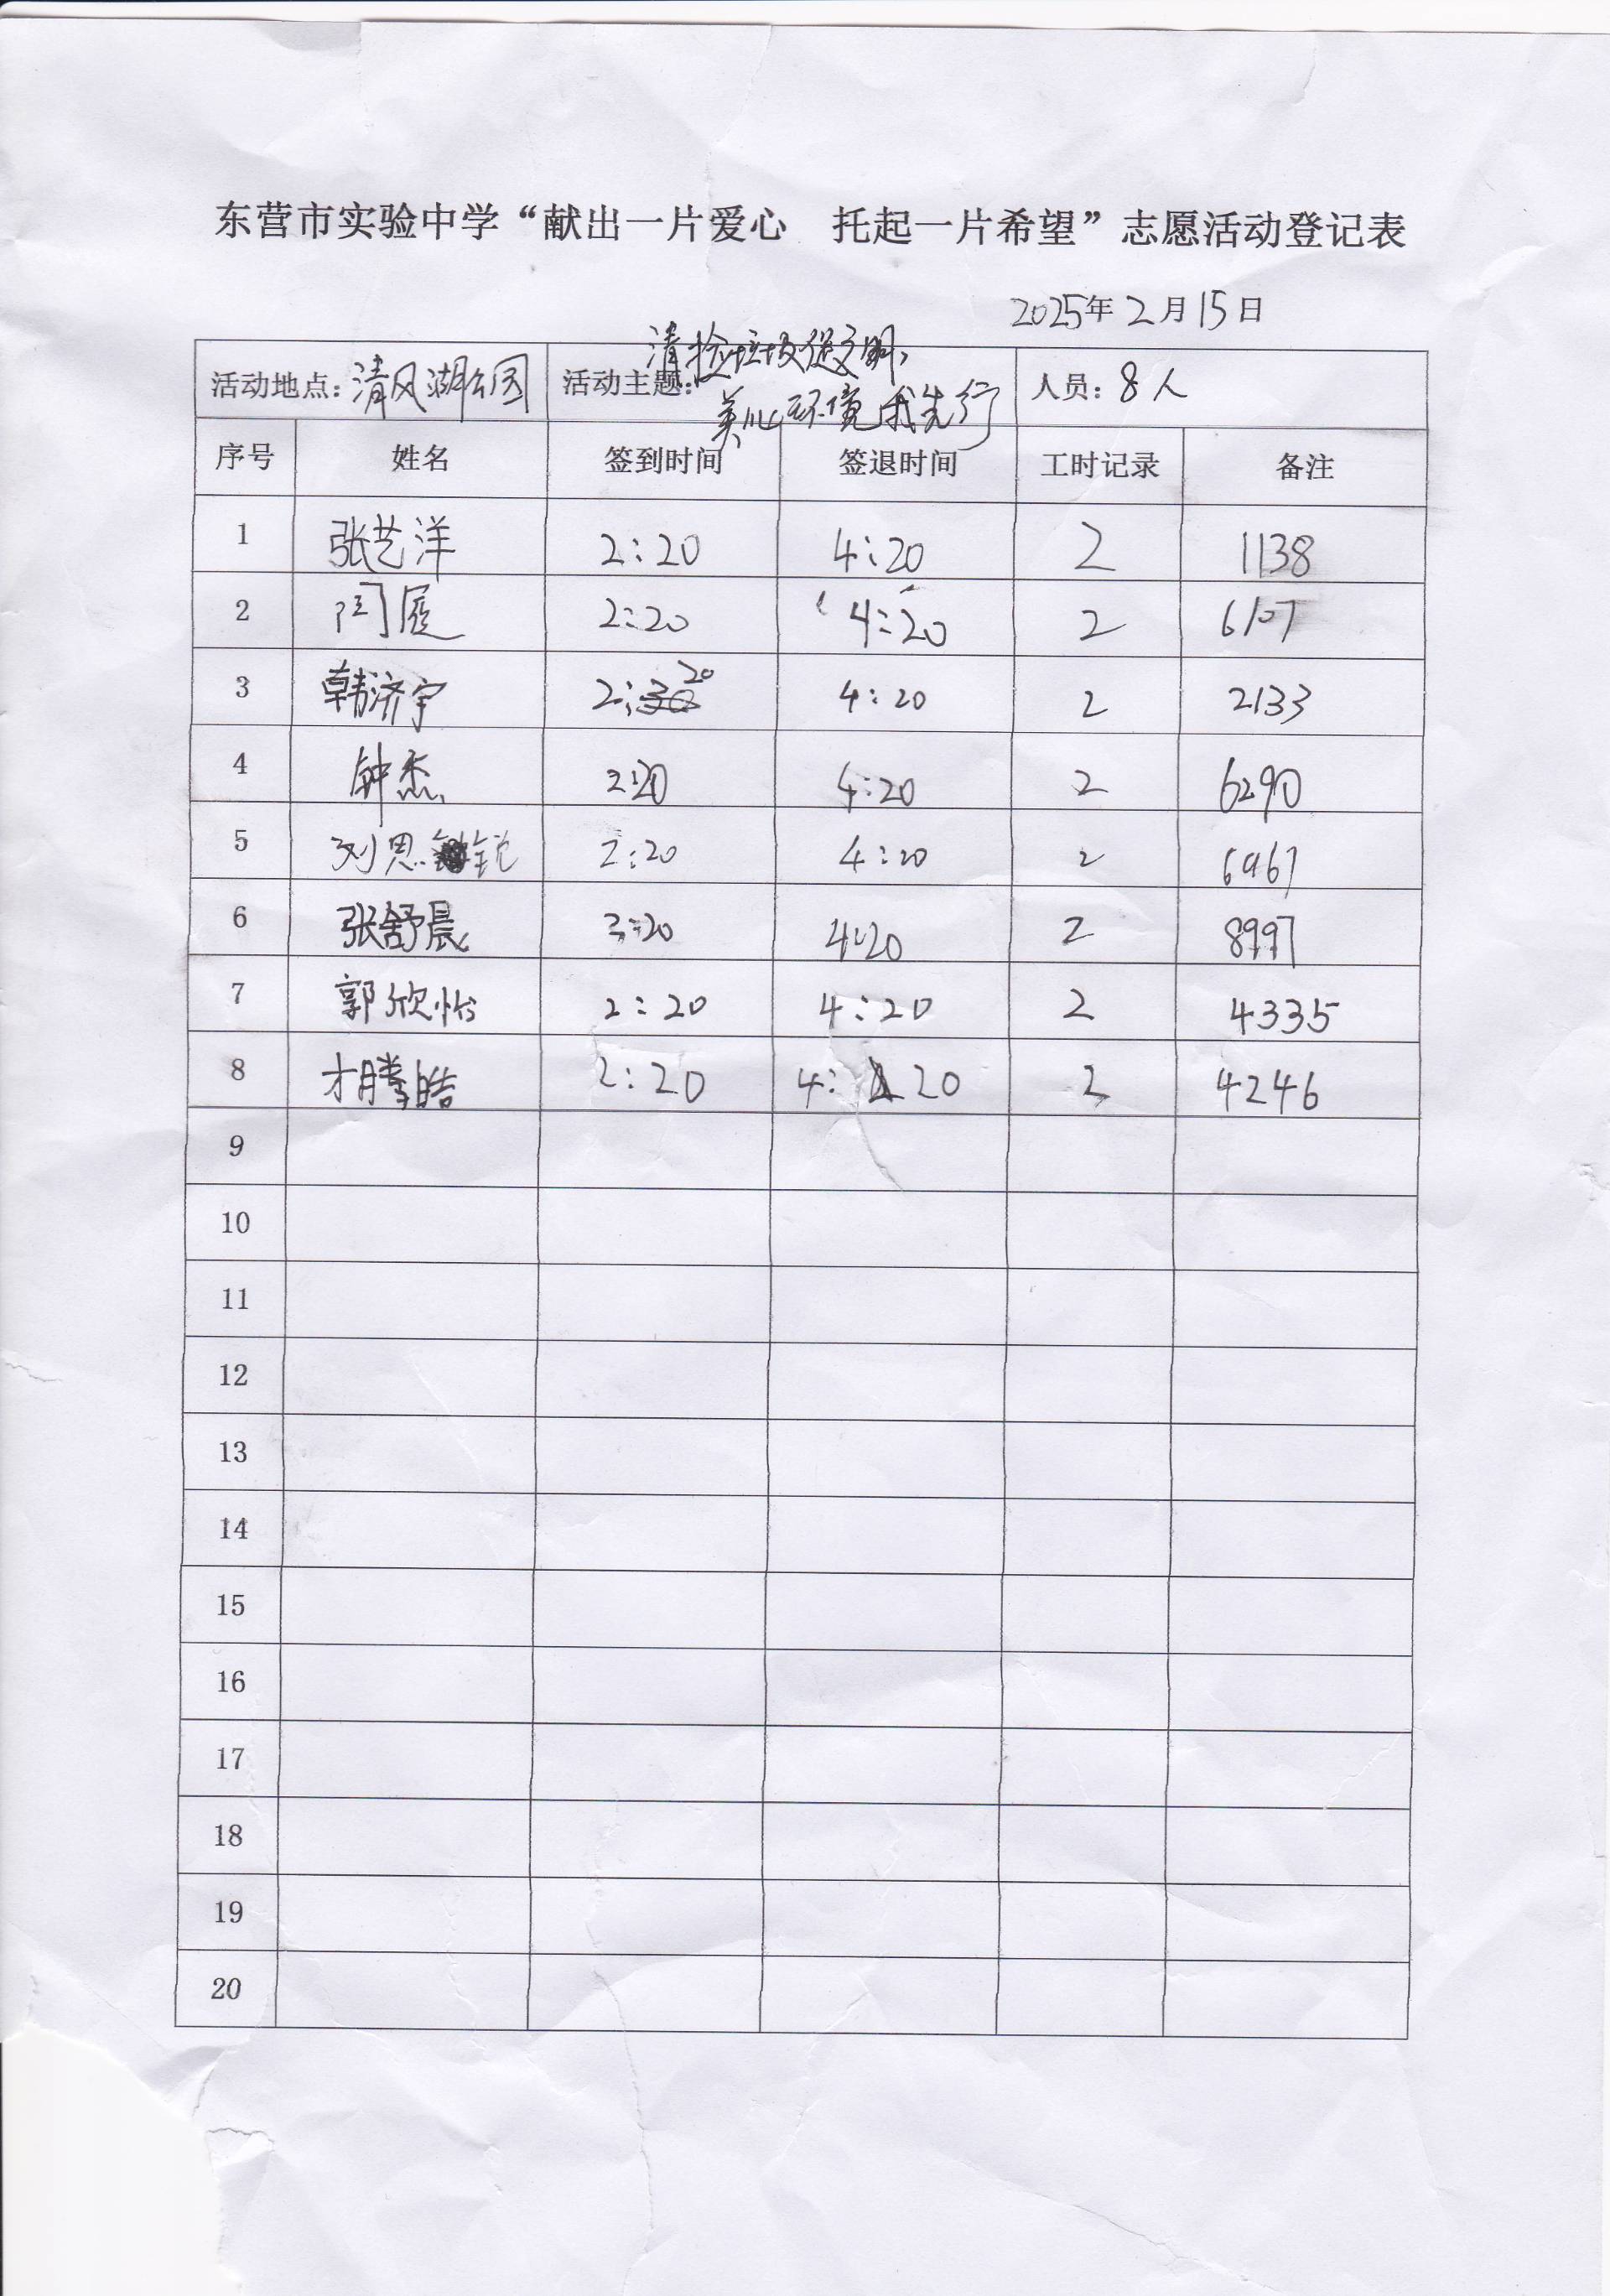 东营市实验中学“献出一片爱心 托起一片希望”志愿活动登记表
2025年2月15日
活动地点：清风湖公园 活动主题：清捡垃圾促文明， 美化环境我先行 人员：8人
序号 姓名 签到时间 签退时间 工时记录 备注
1 张艺洋 2:20 4:20 2 1138
2 闫展 2:20 4:20 2 6107
3 韩济宇 2:20 4:20 2 2133
4 钟杰 2:20 4:20 2 6290
5 刘思锐 2:20 4:20 2 6967
6 张舒晨 2:20 4:20 2 8997
7 郭欣怡 2:20 4:20 2 4335
8 才腾皓 2:20 4:20 2 4246
9
10
11
12
13
14
15
16
17
18
19
20